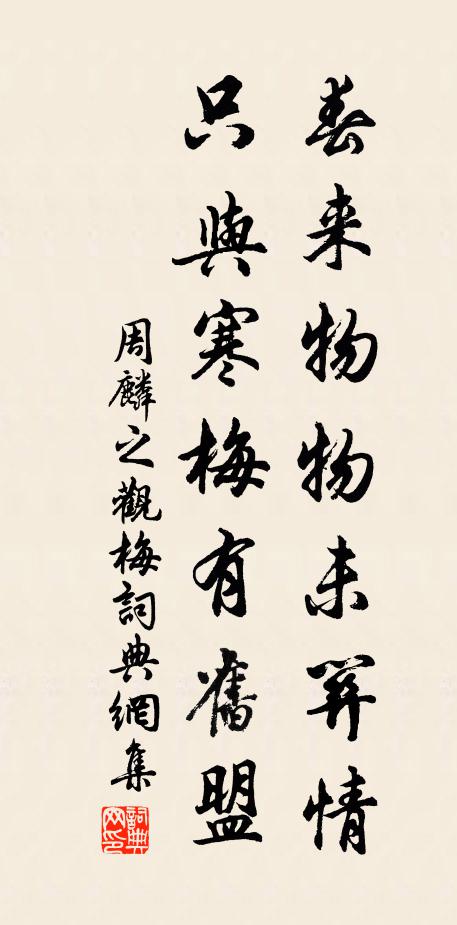 春来物物未關情
只與寒梅有舊盟
周麟之觀梅詞典網集
詞典
网印